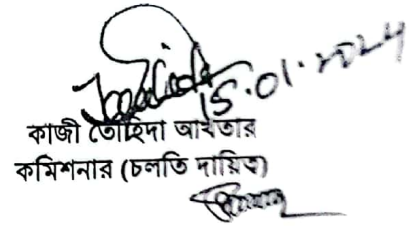 15.01.2024
কাজী তৌহিদা আখতার
কমিশনার (চলতি দায়িত্ব)